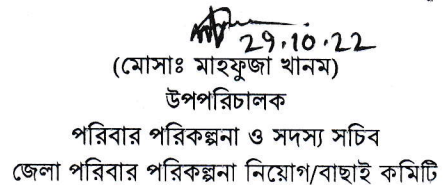 29.10.22
(মোসাঃ মাহফুজা খানম)
উপপরিচালক
পরিবার পরিকল্পনা ও সদস্য সচিব
জেলা পরিবার পরিকল্পনা নিয়োগ/বাছাই কমিটি